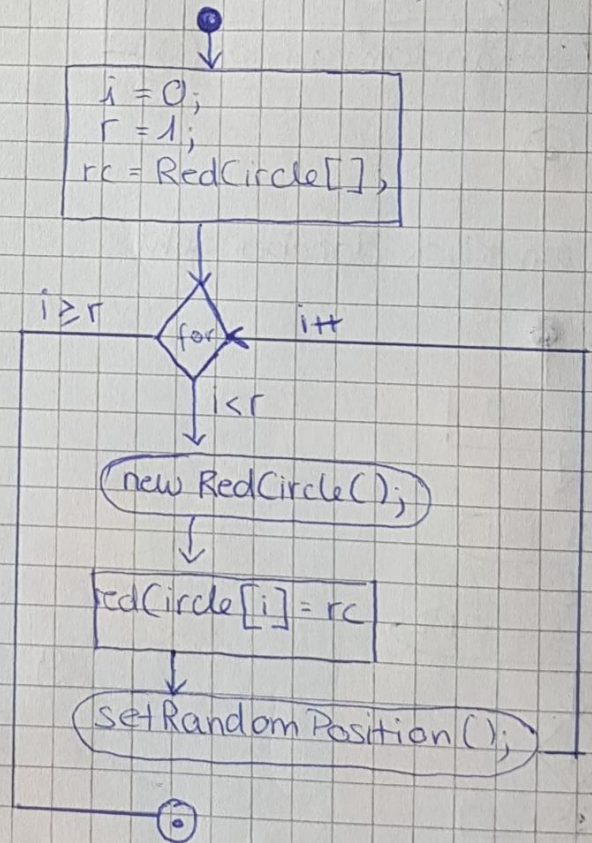 i = 0;
r = 1;
rc = RedCircle[];
i ≥ r
for
i++
i<r
new RedCircle();
redCircle[i] = rc
setRandomPosition();